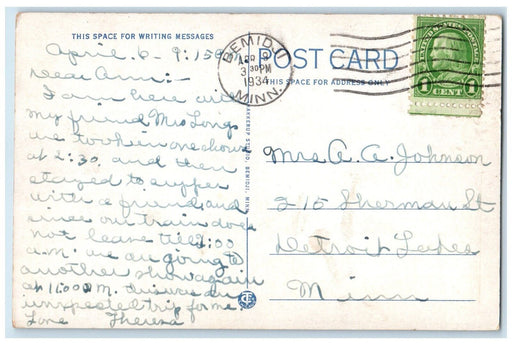 THIS SPACE FOR WRITING MESSAGES
POST CARD
THIS SPACE FOR ADDRESS ONLY
BEMIDJI
APR 9
3 30 PM
1934
MINN.
UNITED STATES POSTAGE
1 CENT 1
April 6- 9:15
Dear Ann:-
I am here with
my friend Mrs Longs
we took in one show
at 2:30. and then
stayed to supper
with a friend, and
since our train does
not leave till 1:00
a.m. we are going to
another show again
at 11:00 P.M. this was an
unexpected trip for me.
Love Theresa
Mrs A. A. Johnson
215 Sherman St
Detroit Lakes
Minn